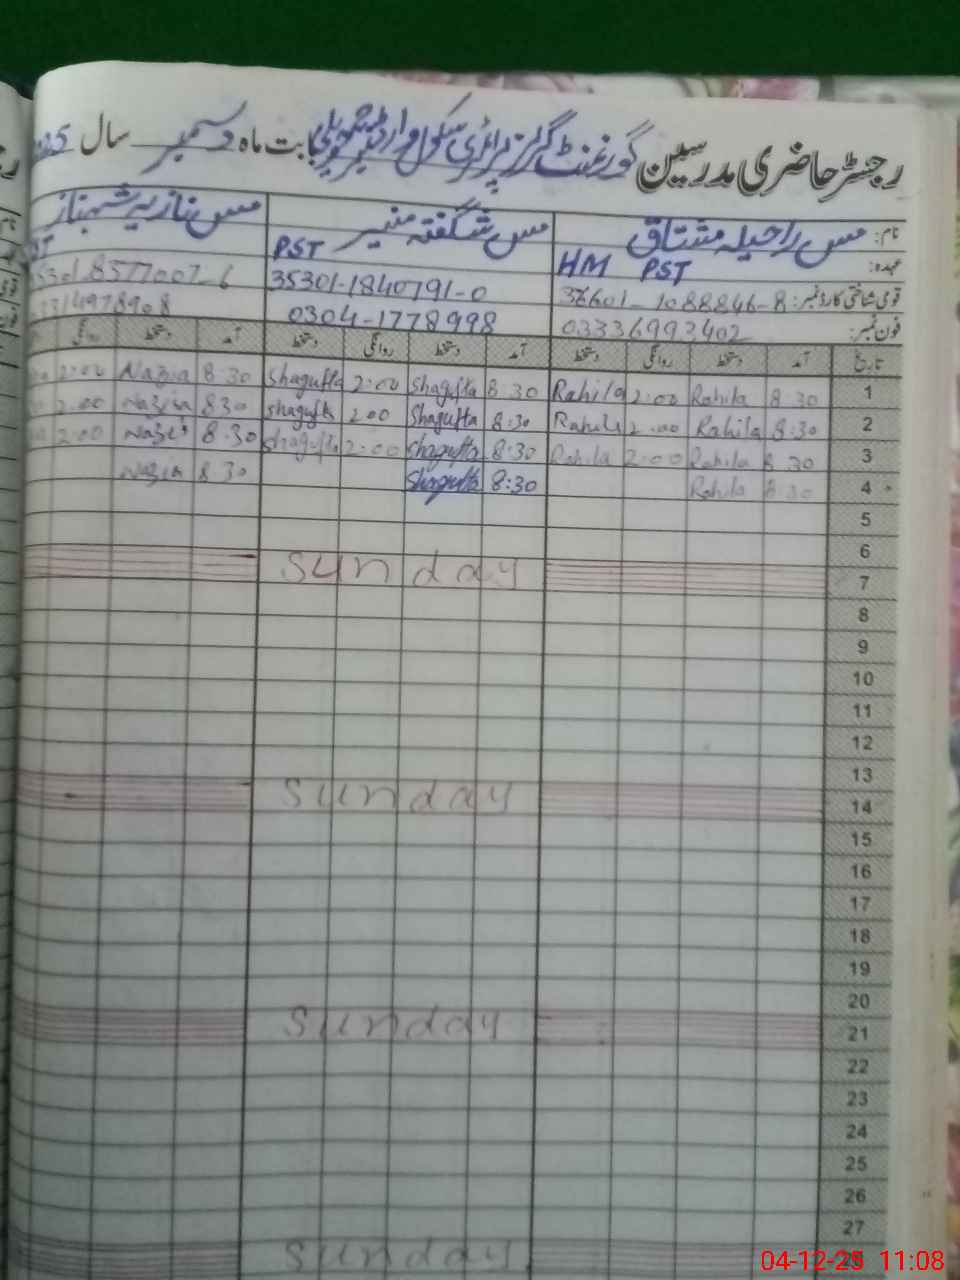 رجسٹر حاضری مدرسین گورنمنٹ گرلز پرائمری سکول بابت ماہ دسمبر سال
نام: مس راحیلہ مشتاق مس شگفتہ منیر مس نازیہ شہناز
عہدہ: HM PST PST
قومی شناختی کارڈ نمبر: 36601-1088846-8 35301-1840791-0 8577007-6
فون نمبر: 03336993402 0304-1778998
تاریخ آمد دستخط روانگی دستخط آمد دستخط روانگی دستخط آمد دستخط روانگی
1 8:30 Rahila 2:00 Rahila 8:30 Shagufta 2:00 Shagufta 8:30 Nazia 2:00
2 8:30 Rahila 2:00 Rahila 8:30 Shagufta 2:00 Shagufta 830 Nazia 2:00
3 8:30 Rahila 2:00 Rahila 8:30 Shagufta 2:00 Shagufta 8:30 Nazia 2:00
4 8:30 Rahila 8:30 Shagufta 8:30 Nazia
5
6
7 Sunday
8
9
10
11
12
13
14 Sunday
15
16
17
18
19
20
21 Sunday
22
23
24
25
26
27
Sunday
04-12-25 11:08